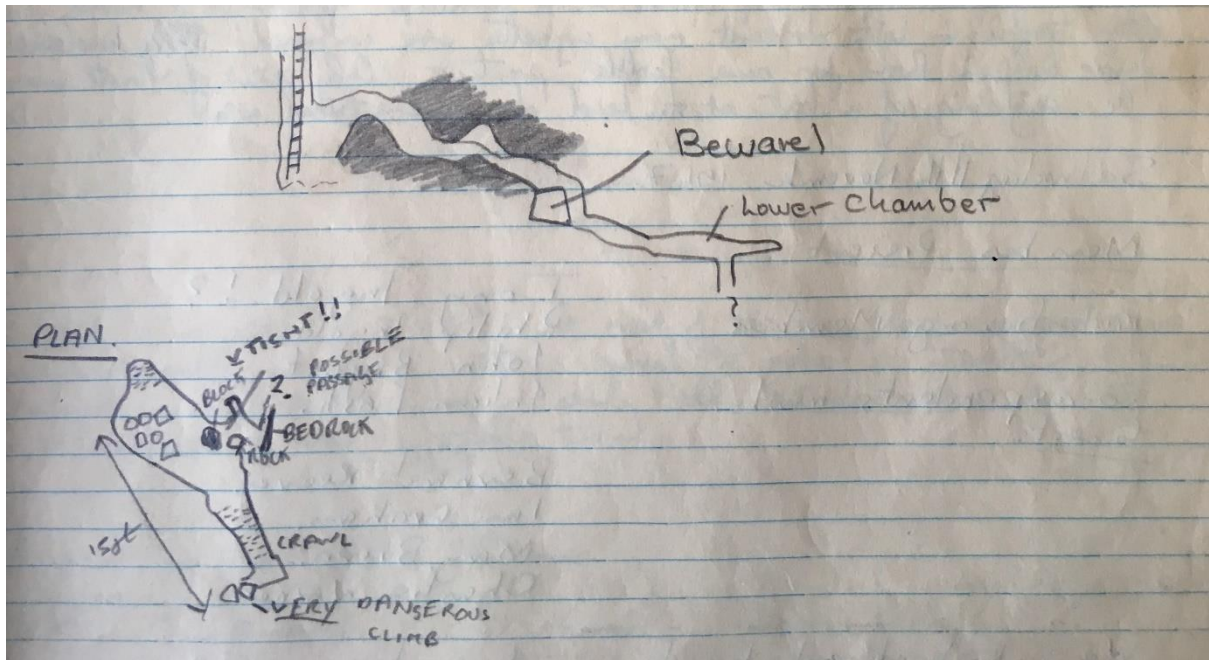 Beware!
Lower Chamber
?
PLAN.
TIGHT!!
BLOCK
?
POSSIBLE
PASSAGE
BEDROCK
ROCK
15ft
CRAWL
VERY DANGEROUS
CLIMB